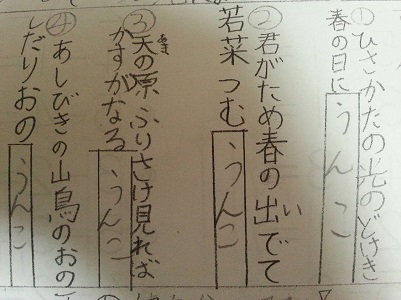 ①ひさかたの光のどけき
春の日にうんこ
②君がため春の出でて
い
若菜つむうんこ
③天の原ふりさけ見れば
あま
かすがなるうんこ
④あしびきの山鳥のおの
しだりおのうんこ